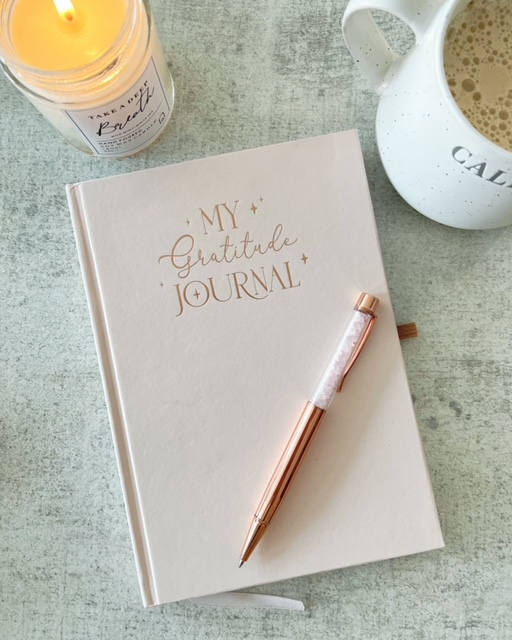 TAKE A DEEP
Breath
CAL
MY
Gratitude
JOURNAL